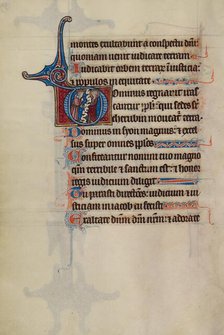 montes exultabunt a conspectu dñi
quoniam uenit iudicare terram
Iudicabit orbem terrarũ in iusticia
& populos in equitate
Dominus regnauit iras
cantur ppl̃i qui sedes
cherubim moueatur terra
Dominus in syon magnus & ex
celsus super omnes pplõs
Confiteantur nomini tuo magno
qm̃ terribile & sanctum est & honor
regis iudicium diligit
Tu parasti directões iudicium & ius
ticiam in iacob tu fecisti
Exaltate dñm dm̃ nrm̃ & adorate